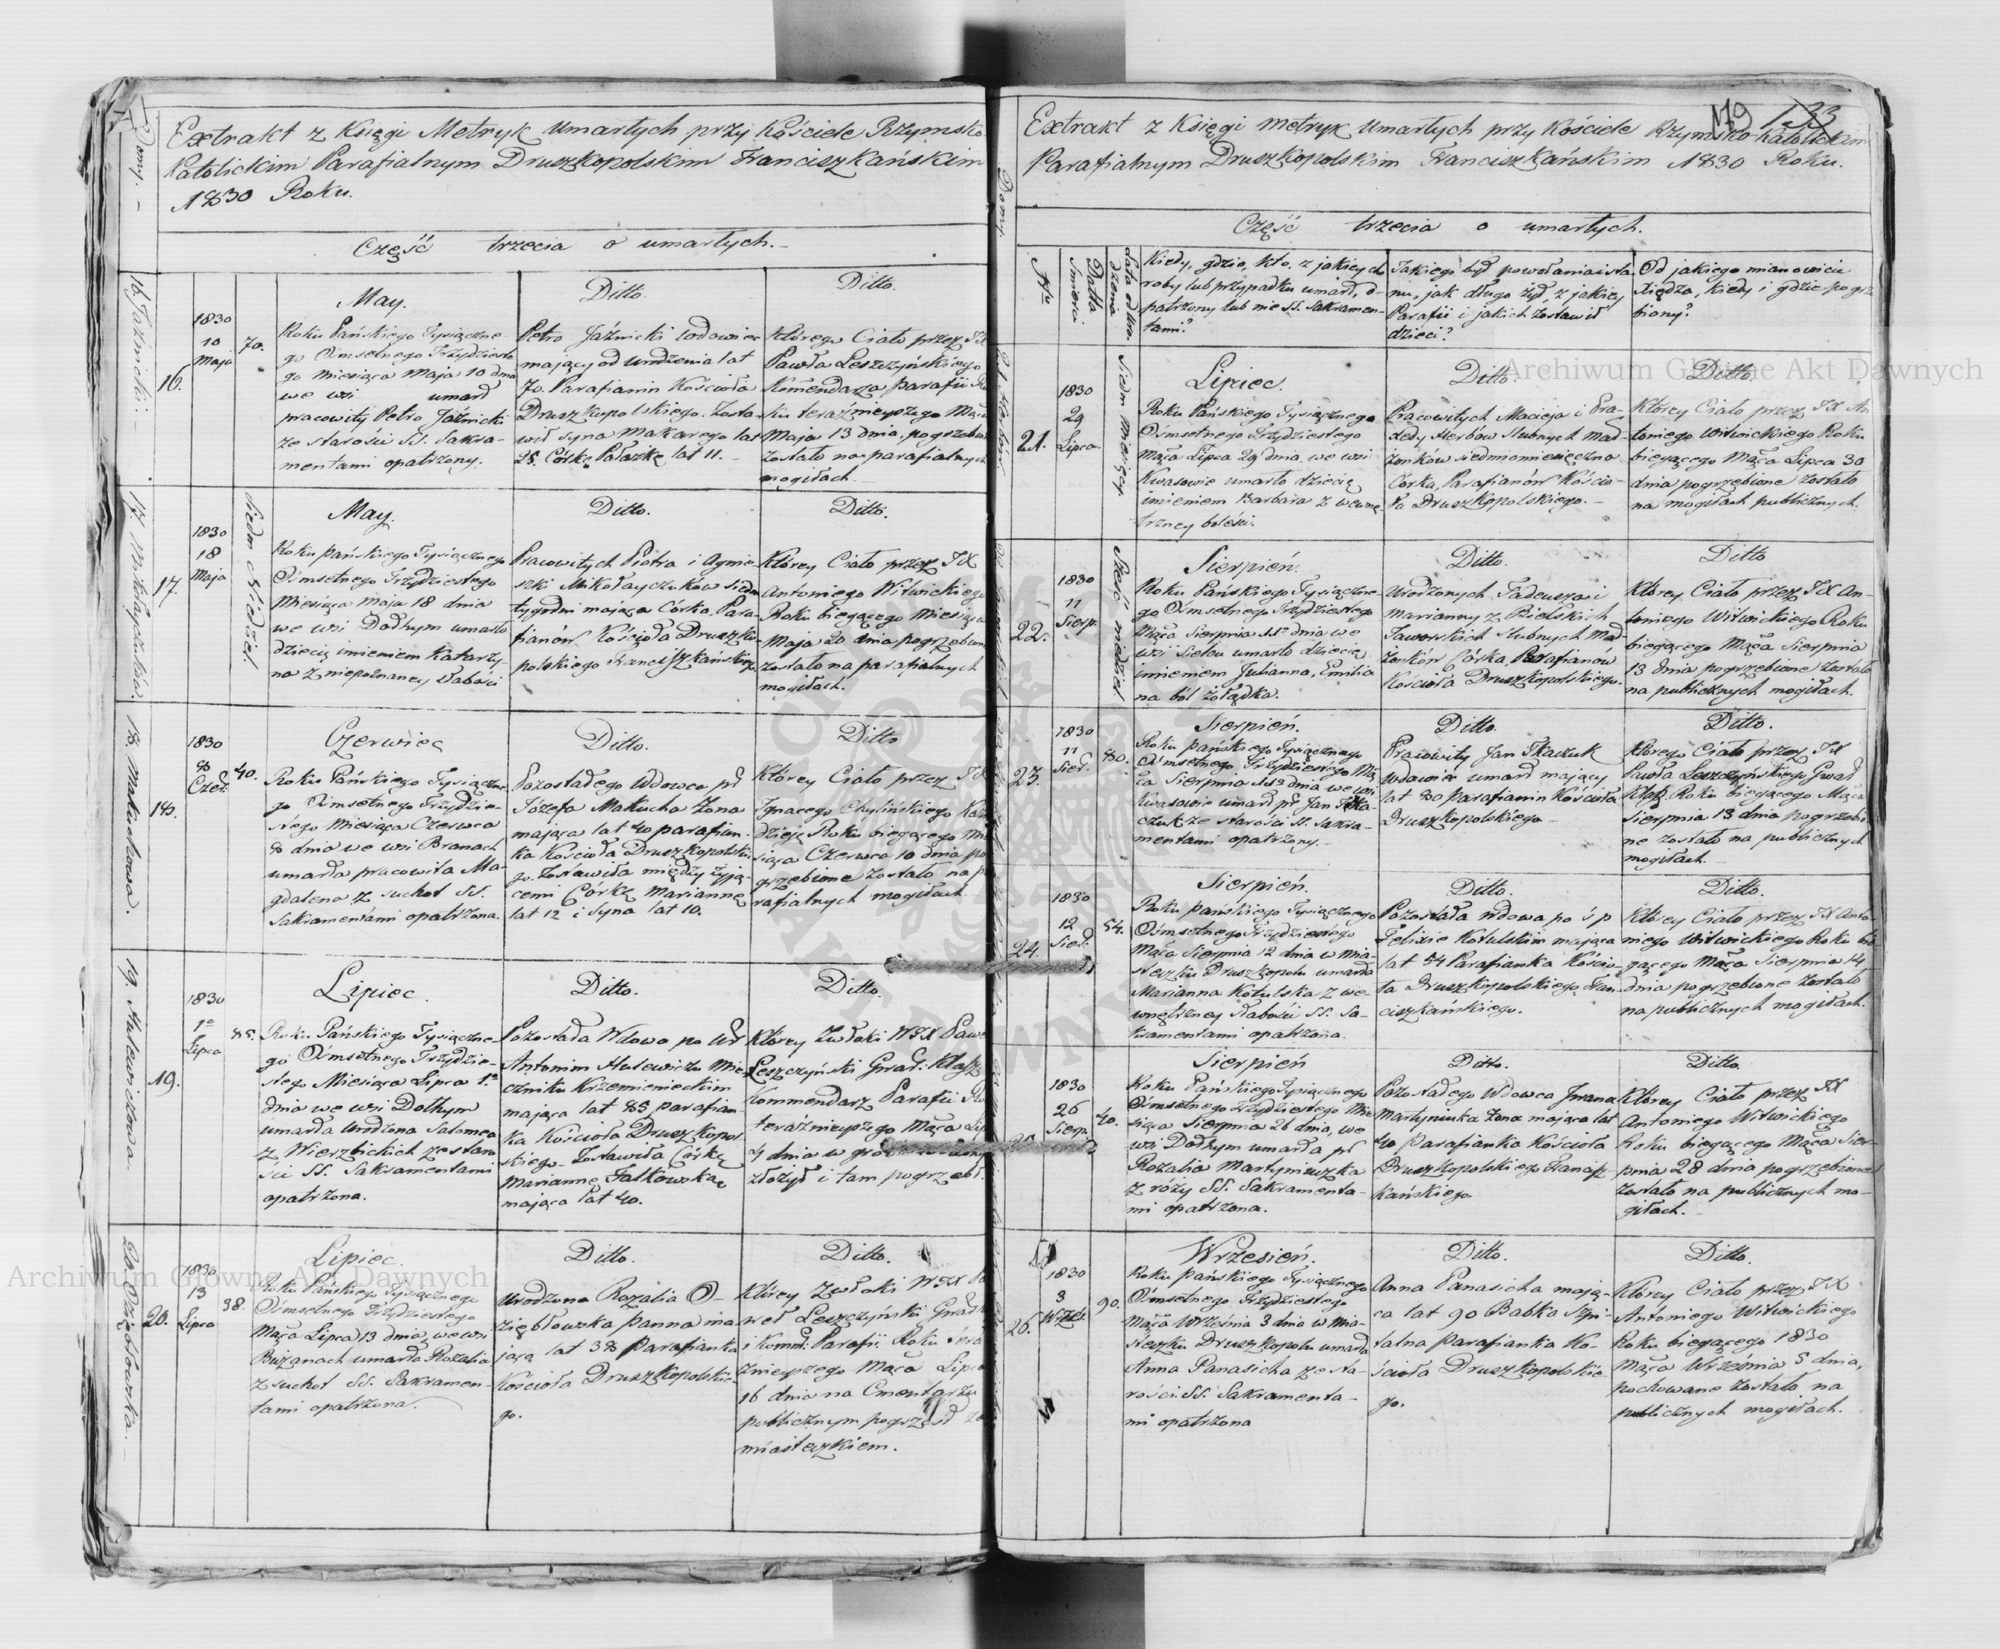 Extrakt z Księgi Metryk umarłych przy Kościele Rzymsko
Katolickim Parafialnym Druszkopolskim Franciszkańskim
1830 Roku.
Część trzecia o umarłych.
16. Jaźnicki
16.
1830
10
Maja
70.
May.
Roku Pańskiego Tysiączne-
go Ośmsetnego Trzydzieste
go miesiąca Maja 10 dnia
we wsi umarł
pracowity Petro Jaźnicki
ze starości SS. Sakra-
mentami opatrzony.
Ditto.
Petro Jaźnicki wdowiec
mający od urodzenia lat
70. Parafianin Kościoła
Druszkopolskiego. Zosta-
wił syna Makarego lat
25. Córkę Pałaszkę lat 11.
Ditto.
którego Ciało przez JX
Pawła Leszczyńskiego
Komendarza parafii Ro
ku teraźnieyszego Mąca
Maja 13 dnia, pogrzebione
zostało na parafialnych
mogiłach.
17. Mikołayczukow
17.
1830
18
Maja
Siedm Niedziel.
May.
Roku pańskiego Tysiącznego
Ośmsetnego Trzydziestego
Miesiąca Maja 18 dnia
we wsi Dołhym umarło
dziecię imieniem Katarzy-
na z niepoznaney słabości
Ditto.
Pracowitych Piotra i Agnie
szki Mikołayczuków siedm
tygodni mająca Córka, Para-
fianów Kościoła Druszko-
polskiego Franciszkańskiego.
Ditto.
Którey Ciało przez JX
Antoniego Witwickiego
Roku bieżącego Miesiąca
Maja 20 dnia pogrzebione
zostało na parafialnych
mogiłach.
18. Makuchowa.
18.
1830
8
Czer.
40.
Czerwiec
Roku Pańskiego Tysiączne
go Ośmsetnego Trzydzie-
stego Miesiąca Czerwca
8 dnia we wsi Branach
umarła pracowita Ma-
gdalena z suchot SS.
Sakramentami opatrzona.
Ditto.
Pozostałego Wdowca pr
Józefa Makucha Żona
mająca lat 40 parafian-
ka Kościoła Druszkopolskie
go. Zostawiła między żyją-
cemi Córkę Mariannę
lat 12 i Syna lat 10.
Ditto
Którey Ciało przez JX
Ignacego Chylińskiego Kazno
dzieję Roku bieżącego Mie
siąca Czerwca 10 dnia po
grzebione zostało na pa
rafialnych mogiłach
19. Hulewiczowa.
19.
1830
1o
Lipca
85.
Lipiec.
Roku Pańskiego Tysiączne-
go Ośmsetnego Trzydzie-
stego Miesiąca Lipca 1o
dnia we wsi Dołhym
umarła Urodzona Salomea
z Wierzbickich ze staro
ści SS. Sakramentami
opatrzona.
Ditto.
Pozostała Wdowa po Ur
Antonim Hulewiczu Mie-
czniku Krzemienieckim
mająca lat 85 parafian
ka Kościoła Druszkopol-
skiego. Zostawiła Córkę
Mariannę Falkowską
mająca lat 40.
Ditto.
Którey Zwłoki WJX Pawe
Leszczyński Gwar: Klasz
Kommendarz Parafii Ro
teraźnieyszego Mąca Lip
4 dnia w
złożył i tam pogrzebł.
20. Oziębłowska.
20.
1830
13
Lipca
38.
Lipiec.
Roku Pańskiego Tysiącznego
Ośmsetnego Trzydziestego
Mąca Lipca 13 dnia, we wsi
Bużanach umarła Rozalia
z suchot SS. Sakramen-
tami opatrzona.
Ditto.
Urodzona Rozalia O-
ziębłowska panna ma
jąca lat 38 parafianka
Kościoła Druszkopolskie-
go.
Ditto.
Którey Zwłoki WJX Pa
weł Leszczyński Gwar
i Komm: Parafii. Roku tera
znieyszego Mąca Lipca
16 dnia na Cmentarzu
publicznym pogrzebł za
miasteczkiem.
179 133
Extrakt z Księgi Metryk Umarłych przy Kościele Rzymsko Katolickim
Parafialnym Druszkopolskim Franciszkańskim 1830 Roku.
Część trzecia o umarłych.
Nro
Datta
Śmierci
Lata od Uro.
dzenia
Kiedy, gdzie, kto, z jakiey cho
roby lub przypadku umarł, o-
patrzony lub nie SS. Sakramen-
tami?
Jakiego był powołania i sta-
nu, jak długo żył, z jakiey
Parafii i jakich zostawił
dzieci?
Od jakiego mianowicie
Xiędza, kiedy i gdzie pogrze
biony?
21.
1830
29
Lipca
Siedm Miesięcy
Lipiec.
Roku Pańskiego Tysiącznego
Ośmsetnego Trzydziestego
Mąca Lipca 29 dnia, we wsi
Kwasowie umarło dziecię
imieniem Barbara z wewnę-
trzney boleści.
Ditto.
Pracowitych Macieja i Pra-
xedy Herbów ślubnych Mał-
żonków siedmiomiesięczna
Córka, Parafianów Kościo-
ła Druszkopolskiego.
Ditto.
Którey Ciało przez JX An-
toniego Witwickiego Roku
bieżącego Mąca Lipca 30
dnia pogrzebione zostało
na mogiłach publicznych.
22.
1830
11
Sierp.
Sześć niedziel
Sierpień.
Roku Pańskiego Tysiączne-
go Ośmsetnego Trzydziestego
Mąca Sierpnia 11o dnia we
wsi Sielcu umarło dziecię
imieniem Julianna, Emilia
na ból żołądka.
Ditto.
Urodzonych Tadeusza i
Marianny z Bielskich
Jaworskich ślubnych Mał-
żonków Córka, Parafianów
Kościoła Druszkopolskiego.
Ditto
Którey Ciało przez JX An-
toniego Witwickiego Roku
bieżącego Mąca Sierpnia
13 dnia pogrzebione zostało
na publicznych mogiłach.
23.
1830
11
Sier.
80.
Sierpień.
Roku pańskiego Tysiącznego
Ośmsetnego Trzydziestego Mią
ca Sierpnia 11o dnia we wsi
Kwasowie umarł pr Jan Tka-
czuk ze starości SS. Sakra-
mentami opatrzony.
Ditto.
Pracowity Jan Tkaczuk
Wdowiec umarł mający
lat 80 parafianin Kościoła
Druszkopolskiego
Ditto.
Którego Ciało przez JX
Pawła Leszczyńskiego Gwar
Klasz. Roku bieżącego Mąca
Sierpnia 13 dnia pogrzebio
ne zostało na publicznych
mogiłach.
24.
1830
12
Sier.
54.
Sierpień.
Roku pańskiego Tysiącznego
Ośmsetnego Trzydziestego
Mąca Sierpnia 12 dnia w mia-
steczku Druszkopolu umarła
Marianna Kotulska z we-
wnętrzney słabości SS. Sa-
kramentami opatrzona.
Ditto.
Pozostała wdowa po ś p
Felixie Kotulskim mająca
lat 54 Parafianka Kościo-
ła Druszkopolskiego Fran
ciszkańskiego.
Ditto.
Którey Ciało przez JX Anto-
niego Witwickiego Roku bie
żącego Mąca Sierpnia 14
dnia pogrzebione zostało
na publicznych mogiłach.
1830
26
Sierp.
40.
Sierpień
Roku Pańskiego Tysiącznego
Ośmsetnego Trzydziestego Mie-
siąca Sierpnia 26 dnia, we
wsi Dołhym umarła pr
Rozalia Martyniuczka
z róży SS. Sakramenta-
mi opatrzona.
Ditto.
Pozostałego Wdowca Jwana
Martyniuka żona mająca lat
40 parafianka Kościoła
Druszkopolskiego Francisz
kańskiego
Ditto.
Którey Ciało przez JX
Antoniego Witwickiego
Roku bieżącego Mąca Sier-
pnia 28 dnia pogrzebione
zostało na publicznych mo-
giłach.
26.
1830
3
Wrześ.
90.
Wrzesień.
Roku pańskiego Tysiącznego
Ośmsetnego Trzydziestego
Mąca Września 3 dnia w Mia-
steczku Druszkopolu umarła
Anna Panasicha ze sta-
rości SS. Sakramenta-
mi opatrzona
Ditto.
Anna Panasicha mają-
ca lat 90 Babka Szpi-
talna parafianka Ko-
ścioła Druszkopolskie-
go.
Ditto.
Którey Ciało przez JX
Antoniego Witwickiego
Roku bieżącego 1830
Mąca Września 5 dnia,
pochowane zostało na
publicznych mogiłach.
Archiwum Główne Akt Dawnych
Archiwum Główne Akt Dawnych